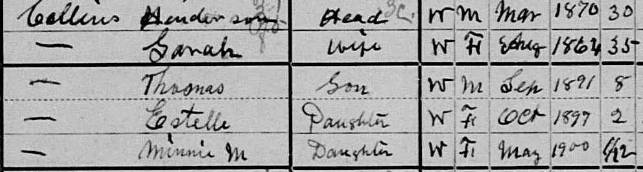 Collins Henderson Head W M Mar 1870 30
— Sarah Wife W F Aug 1864 35
— Thomas Son W M Sep 1891 8
— Estelle Daughter W F Oct 1897 2
— Minnie M Daughter W F May 1900 /12